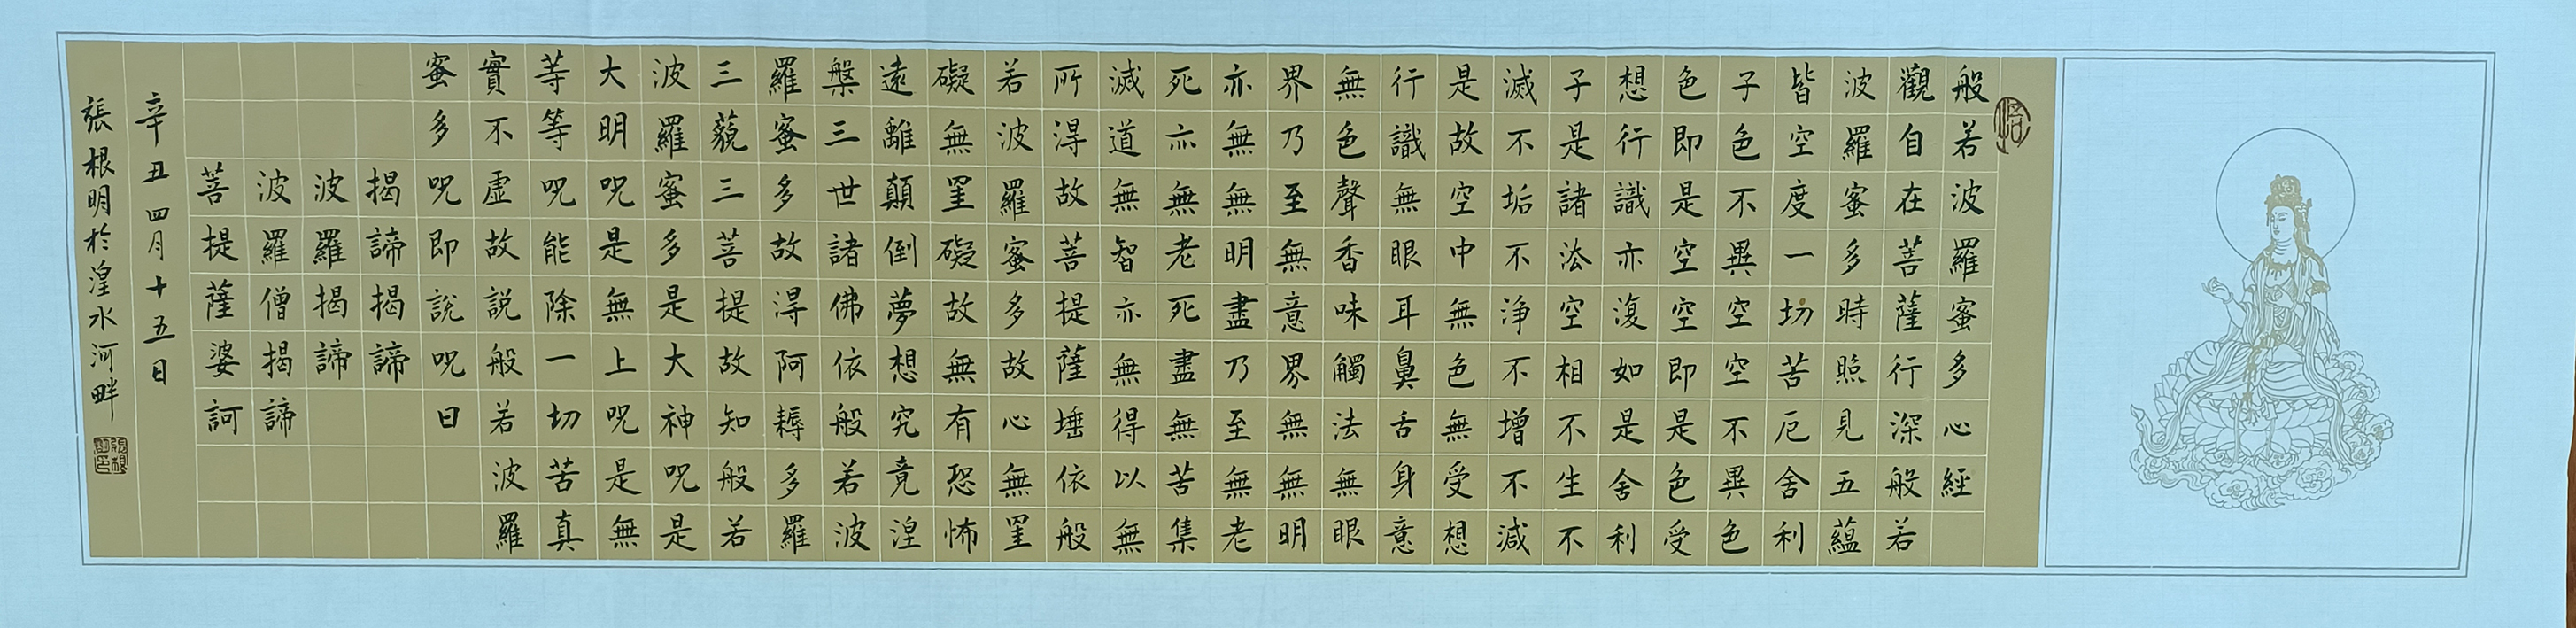 悟
般若波羅蜜多心經
觀自在菩薩行深般若
波羅蜜多時照見五蘊
皆空度一切苦厄舍利
子色不異空空不異色
色即是空空即是色受
想行識亦復如是舍利
子是諸法空相不生不
滅不垢不淨不增不減
是故空中無色無受想
行識無眼耳鼻舌身意
無色聲香味觸法無眼
界乃至無意界無無明
亦無無明盡乃至無老
死亦無老死盡無苦集
滅道無智亦無得以無
所得故菩提薩埵依般
若波羅蜜多故心無罣
礙無罣礙故無有恐怖
遠離顛倒夢想究竟涅
槃三世諸佛依般若波
羅蜜多故得阿耨多羅
三藐三菩提故知般若
波羅蜜多是大神咒是
大明咒是無上咒是無
等等咒能除一切苦真
實不虛故說般若波羅
蜜多咒即說咒曰
揭諦揭諦
波羅揭諦
波羅僧揭諦
菩提薩婆訶
辛丑四月十五日
張根明於湟水河畔
張根明印